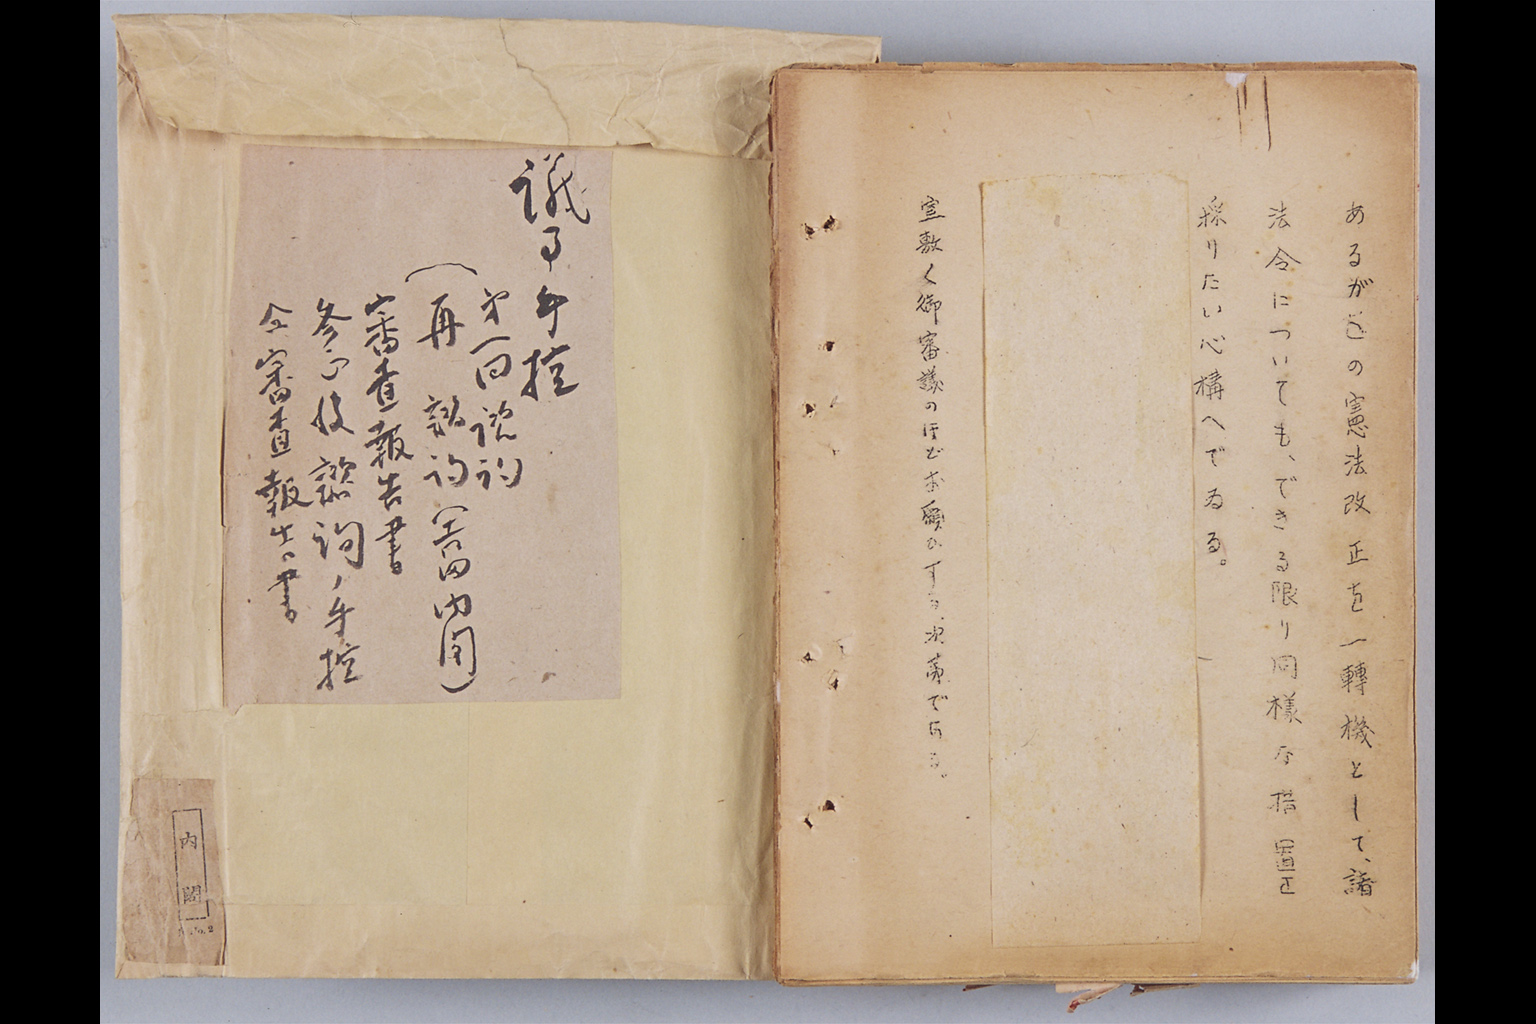 あるが、この憲法改正を一轉機として、諸
法令についても、できる限り同様な措置を
採りたい心構へでゐる。
宜敷く御審議のほどお願ひする次第である。
議事手控
第一回諮詢
(再諮詢(吉田内閣)
審査報告書
参予後諮詢ノ手控
仝審査報告書
内閣